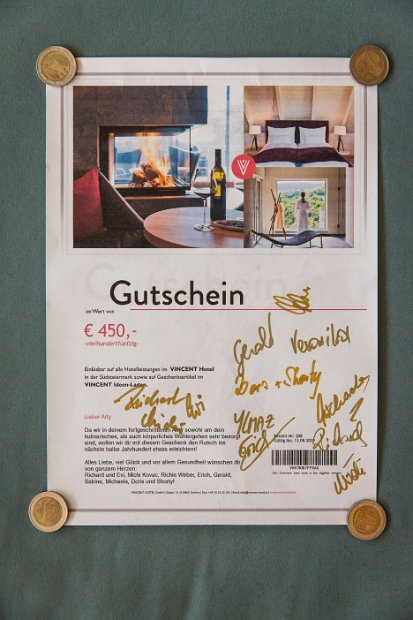 Gutschein
im Wert von
€ 450,-
-vierhundertfünfzig-
Einlösbar auf alle Hotelleistungen im VINCENT Hotel
in der Südsteiermark sowie auf Geschenksartikel im
VINCENT Ideen-Laden.
Lieber Arly
Da wir in deinem fortgeschrittenen Alter sowohl um dein
kulinarisches, als auch körperliches Wohlergehen sehr besorgt
sind, wollen wir dir mit diesem Geschenk den Rutsch ins
nächste halbe Jahrhundert etwas erleichtern!
Alles Liebe, viel Glück und vor allem Gesundheit wünschen dir
von ganzem Herzen:
Richard und Evi, Michi Kovac, Richie Weber, Erich, Gerald,
Sabine, Michaela, Doris und Shorty!
Gerald
Veronika
Doris + Shorty
Richard
YLMAZ
Erich
Michaela
Richard